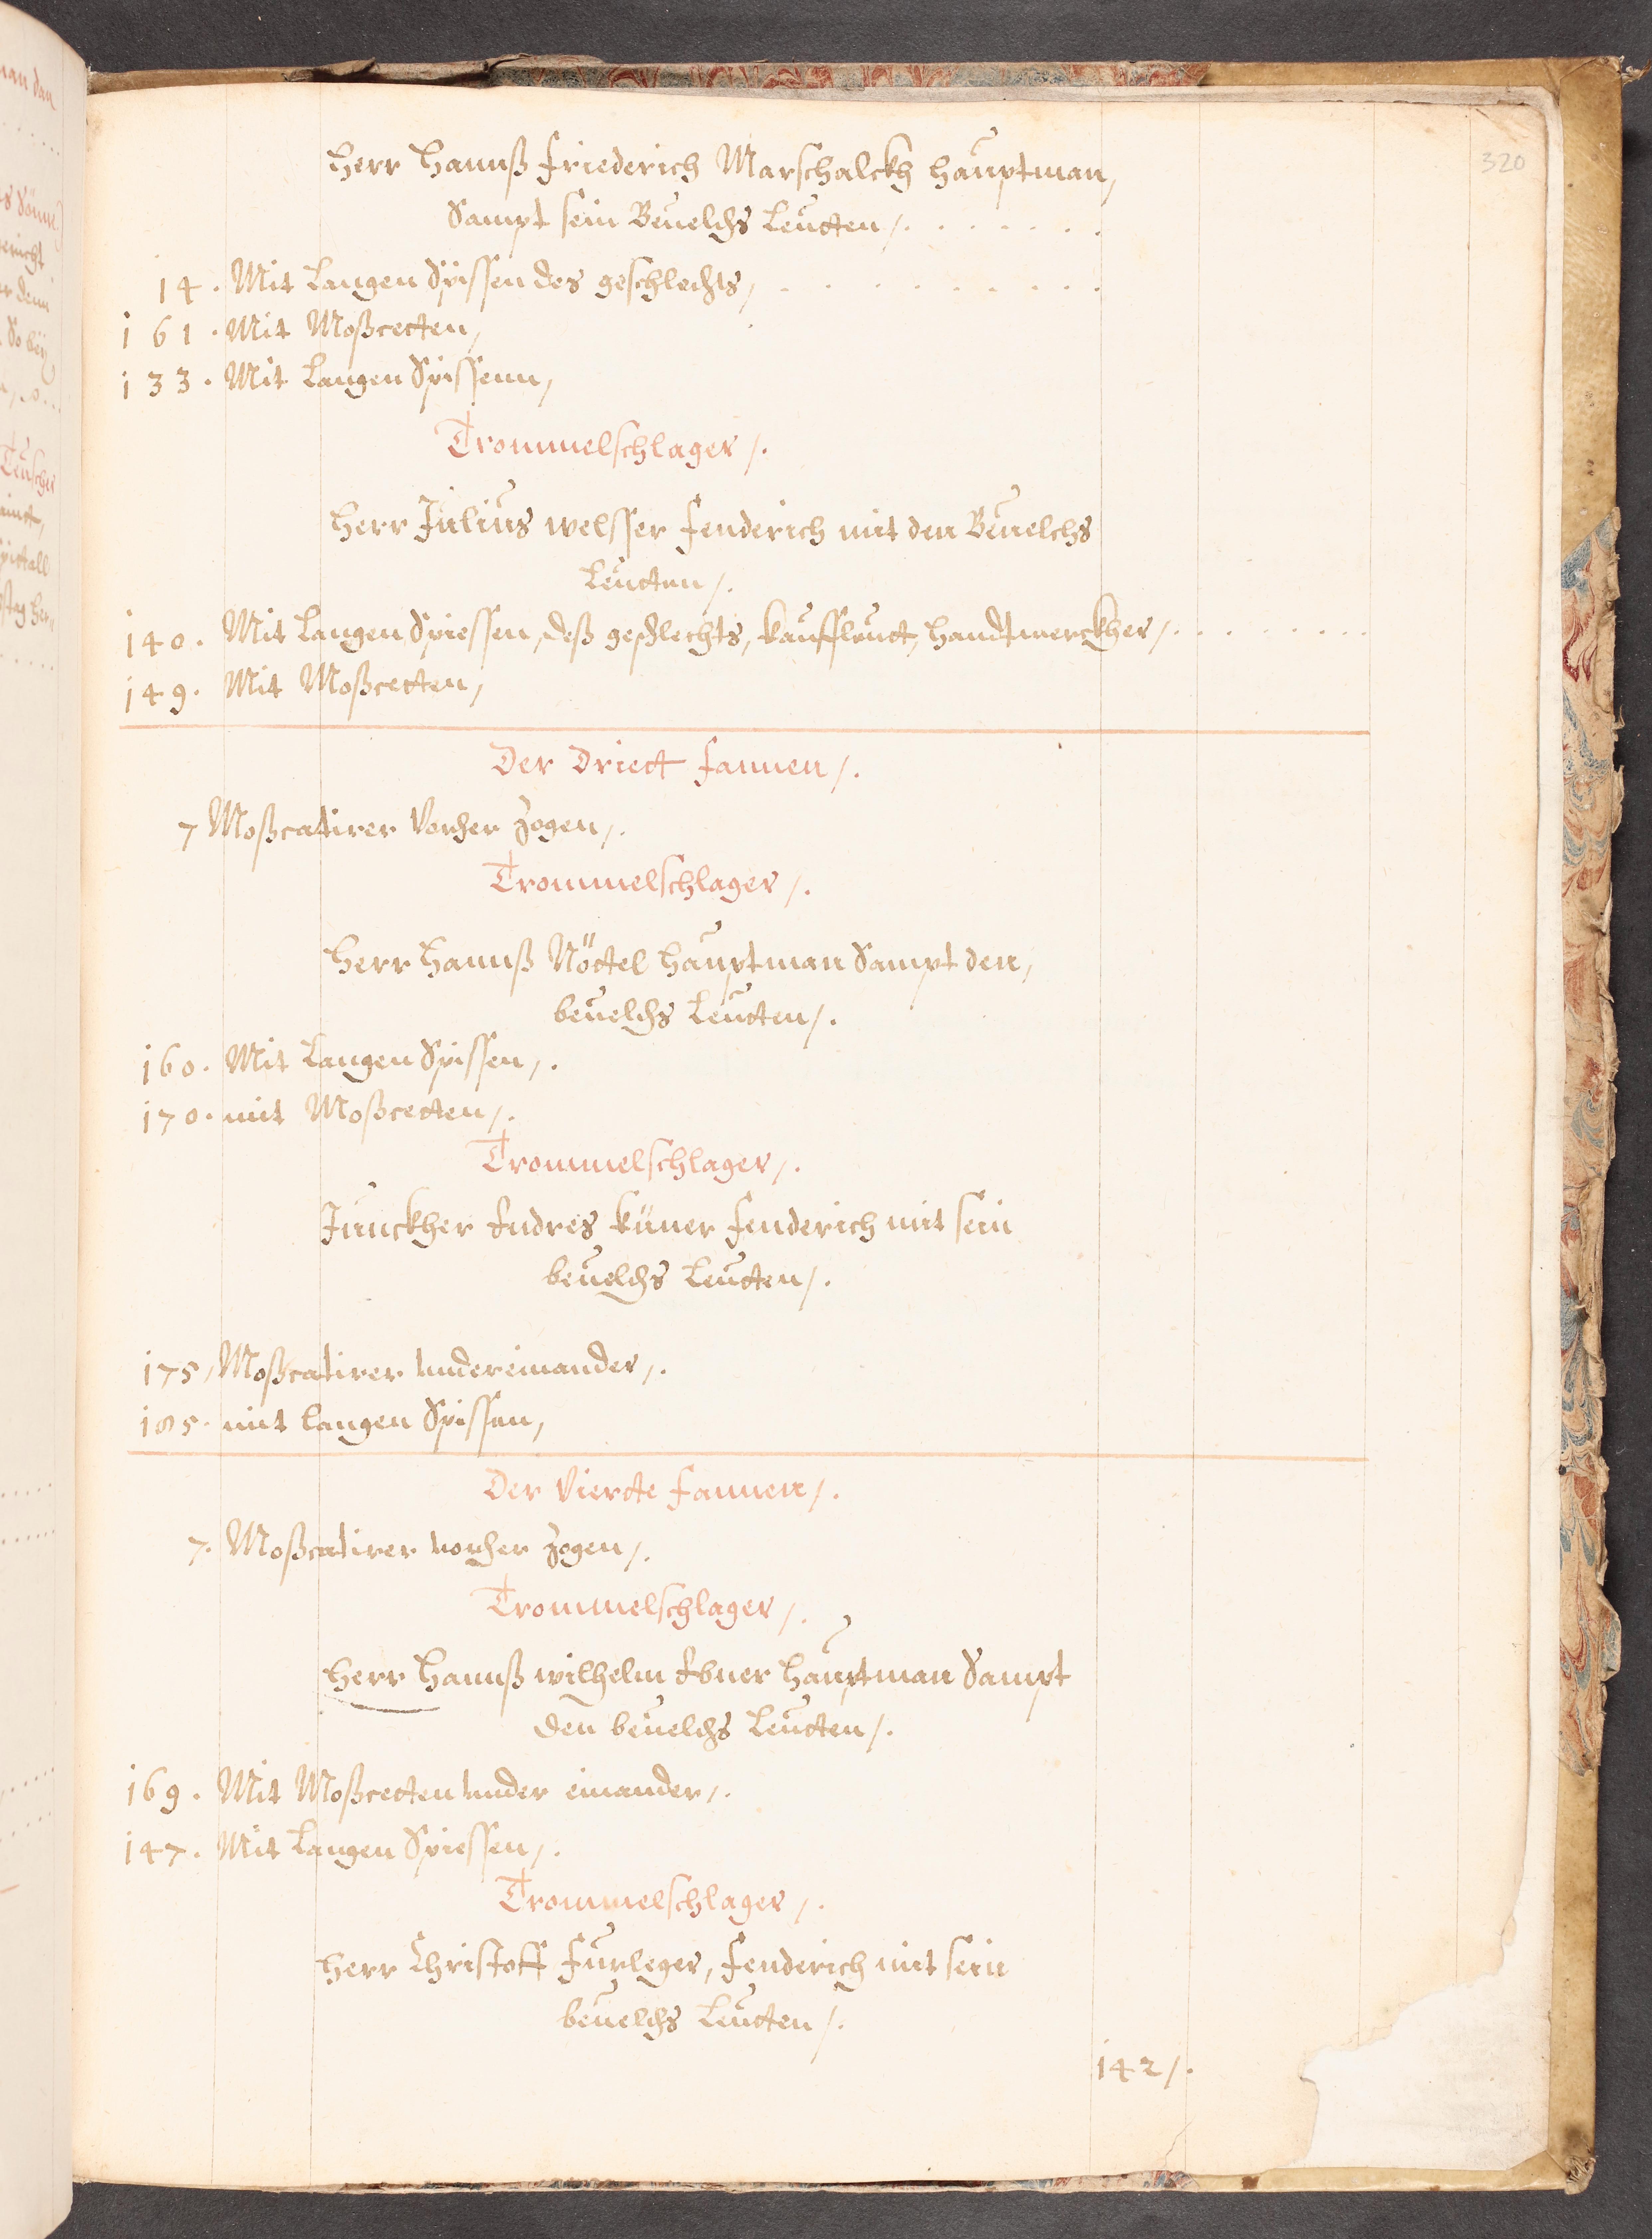 320
Herr Hannß Friederich Marschalckh Hauptman,
Sampt sein Beuelchs Leutten /. . . . . . .
14. Mit Langen Spissen des geschlechts, . . . . . . . .
161. Mit Moßcetten,
133. Mit Langen Spissenn,
Trommelschlager /.
Herr Julius welsser Fenderich mit den Beuelchs
Leutten /.
140. Mit Langen Spiessen, deß geschlechts, kauffleutt, Handtwerckher /. . . . . . .
149. Mit Moßcetten,
Der Driett Fannen /.
7 Moßcatirer Vorher Zogen /.
Trommelschlager /.
Herr Hannß Nöttel Hauptman Sampt den,
beuelchs Leutten /.
160. Mit Langen Spissen /.
170. mit Moßcetten /.
Trommelschlager /.
Junckher Endres küner Fenderich mit sein
beuelchs Leutten /.
175 / Moßcatirer undereinander /.
185. mit langen Spissen,
Der Vierte Fannen /.
7. Moßcatirer vorher Zogen /.
Trommelschlager /.
Herr Hannß wilhelm Ebner Hauptman Sampt
den beuelchs Leutten /.
169. Mit Moßcetten under einander /.
147. Mit Langen Spiessen /.
Trommelschlager /.
Herr Christoff Furleger, Fenderich mit sein
beuelchs Leutten /.
142 /.